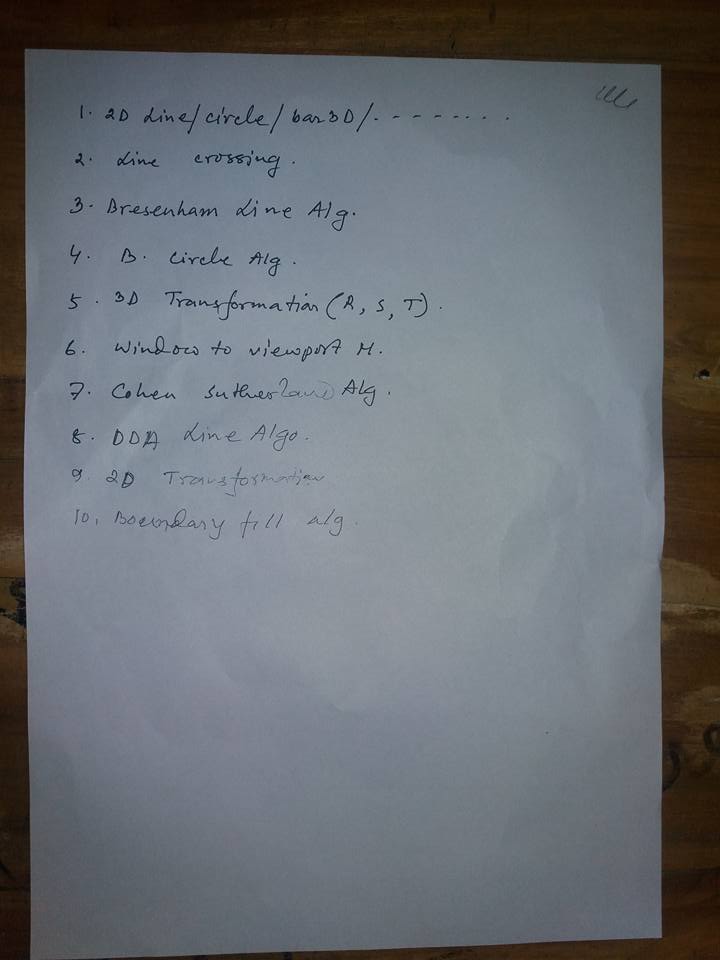 1. 2D Line/circle/bar3D/- - - - - - - -
2. Line crossing.
3. Bresenham Line Alg.
4. B. Circle Alg.
5. 3D Transformation (R, S, T).
6. Window to viewport M.
7. Cohen Sutherland Alg.
8. DDA Line Algo.
9. 2D Transformation
10. Boundary fill alg.